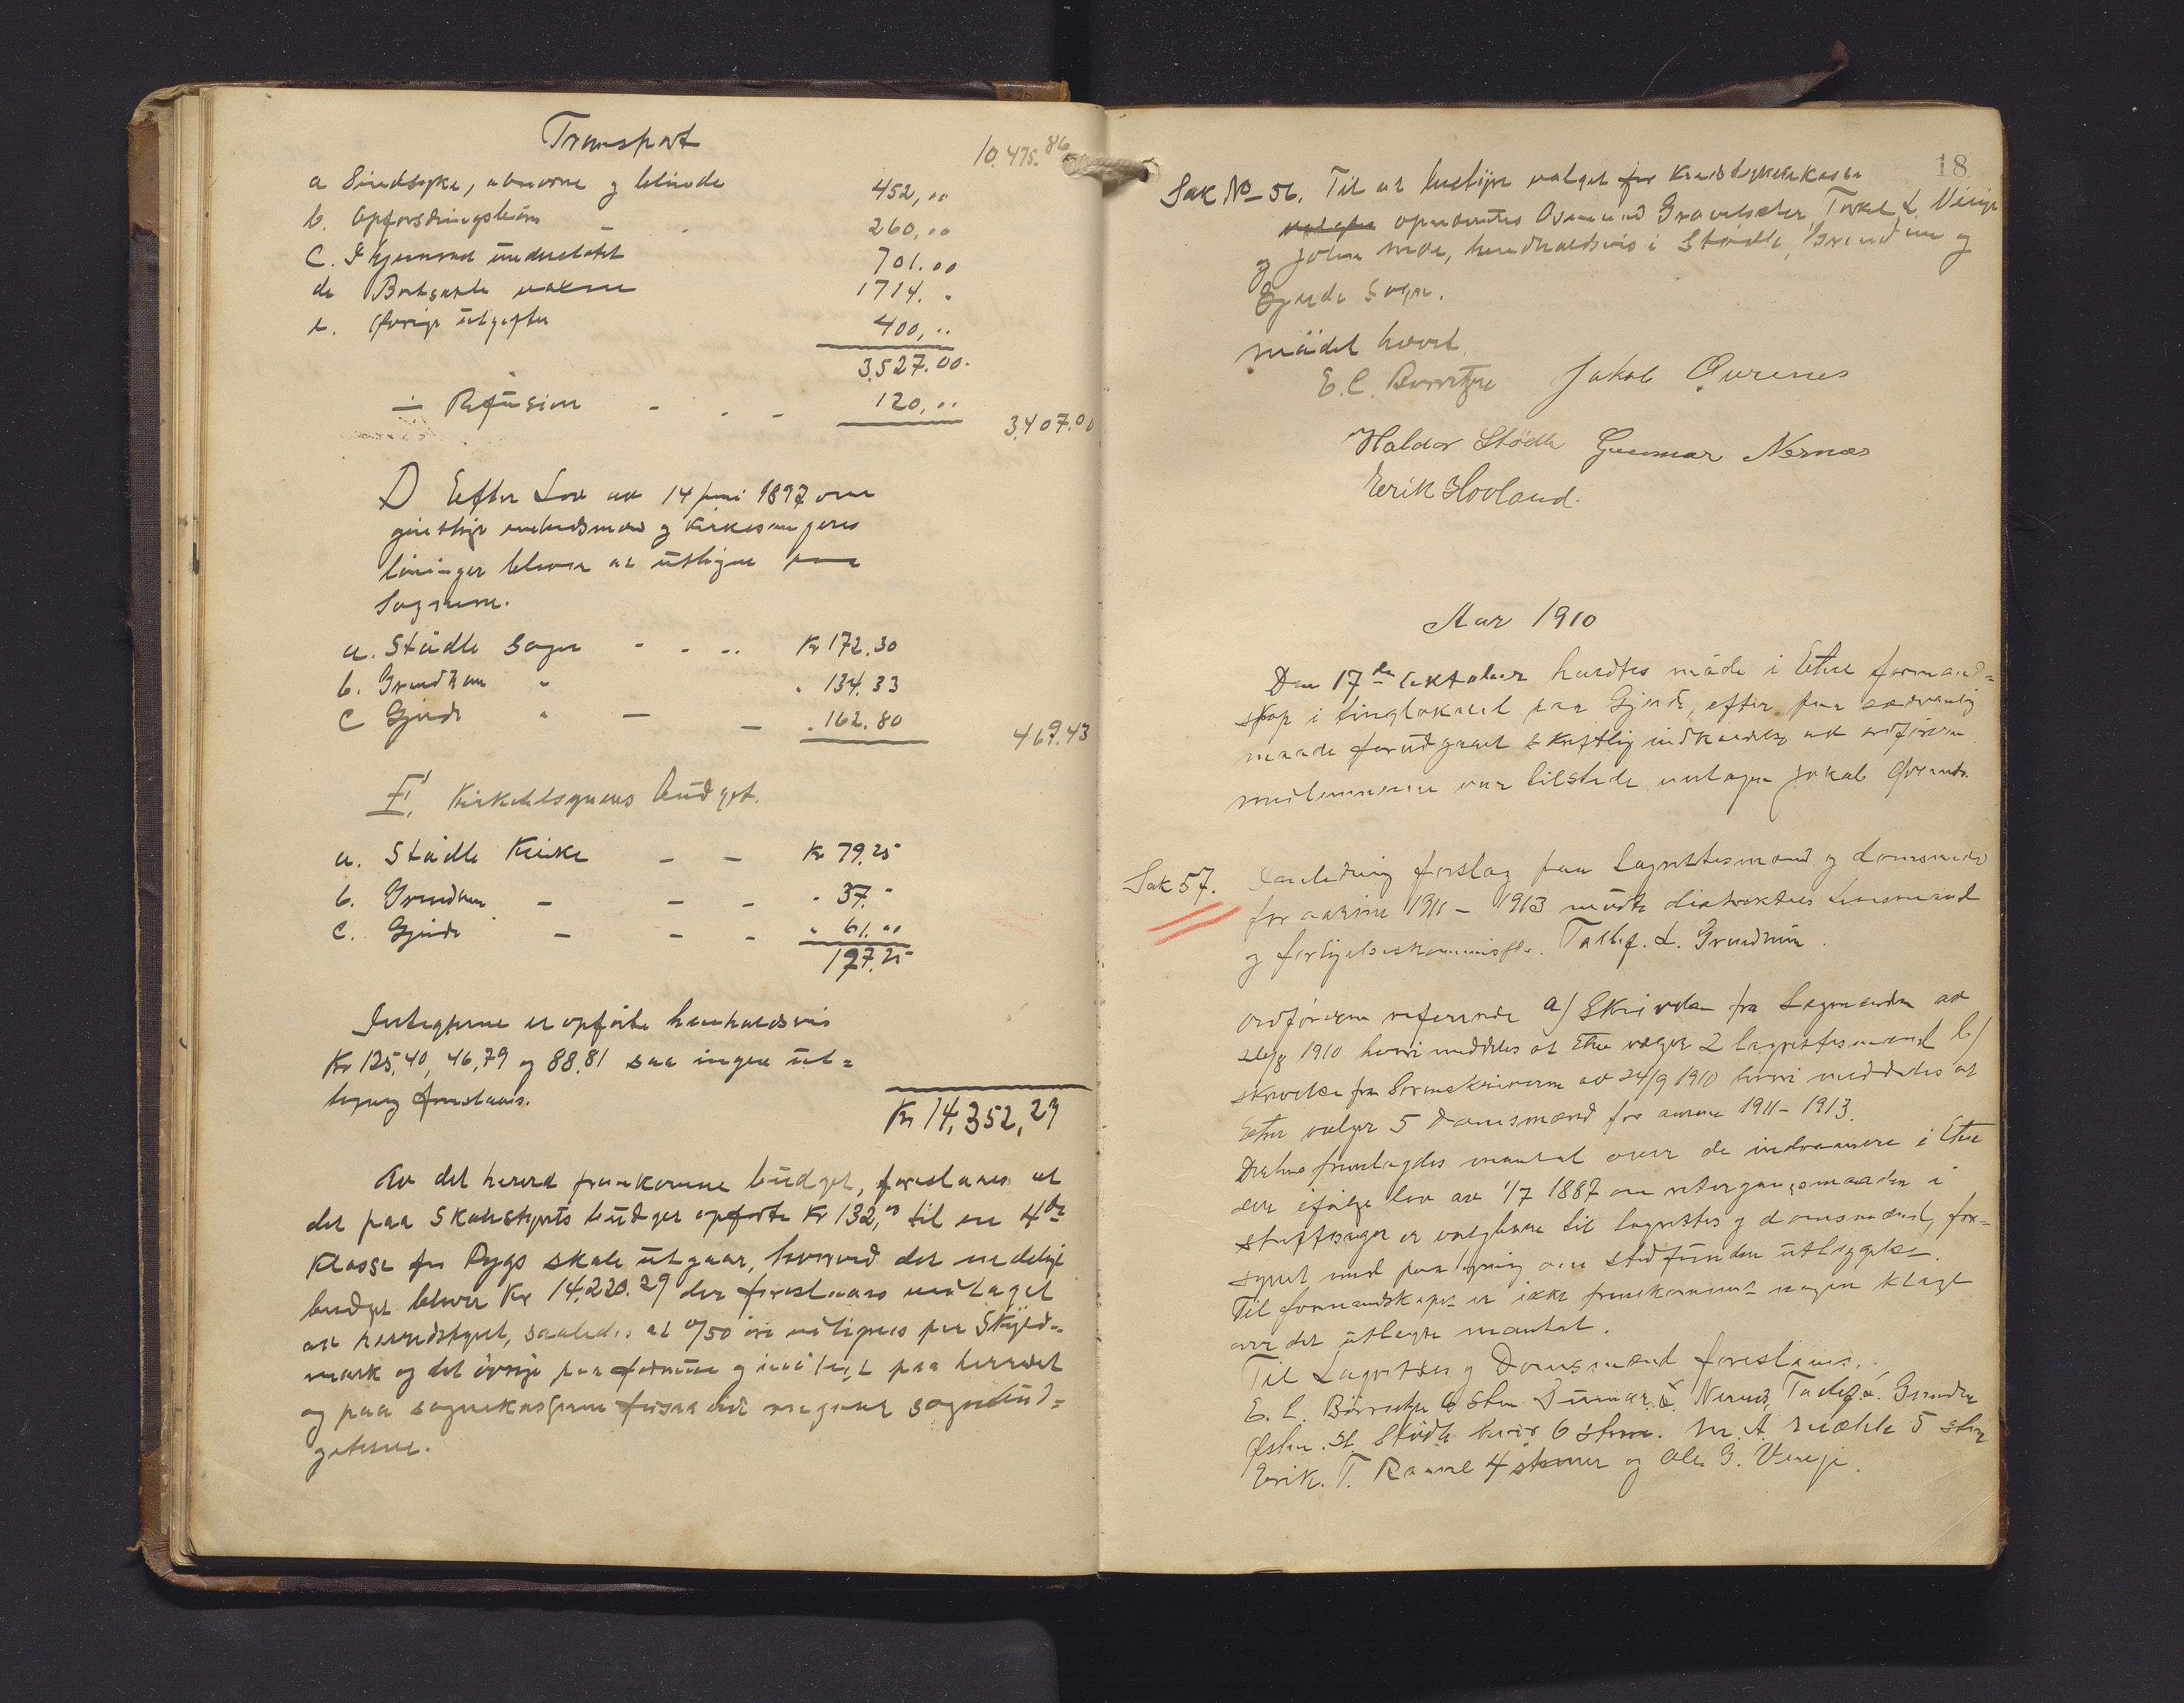 Transport 10.475.86
a Sindssyke, abnorme g blinde 452,00
b. Opfostringsbörn 260,00
c. I hjemmet understöttet 701.00
d. Bortsatte voksne 1714. "
e. Övrige utgifter 400,00
3.527.00.
÷ Refusion - - - 120,00 3.407.00
D Efter Lov av 14 juni 1897 om
geistlige embedsmænd g Kirkesangeres
löninger bliver at utligne paa
Sognerne.
a. Stödle Sogn - - - Kr 172.30
b. Grindheim " " 134.33
c Gjerde " - - " 162.80 467.43
II, Kirketilsynenes Budget.
a. Stödle Kirke - - Kr 79.25
b. Grindheim - - - " 37. -
c. Gjerde - - - " 61.00
177.25
Indtægterne er opförte henholdsvis
Kr 125,40, 46,79 og 88,81 saa ingen ut=
ligning foreslaaes.
Kr 14,352,29
Av det herved fremkomne budget, foreslaaes at
det paa Skolestyrets budget opförte Kr 132,00 til en 4de
Klasse for Rygs skole utgaar, hvorved det endelige
budget bliver Kr 14,220.29 der foreslaaes vedtaget
av herredstyret, saaledes at 0/50 öre utlignes per Skyld-
mark og det övrige paa formue og indtægt paa herredet
og paa sognekasserne forsaavidt angaar sognebud=
getterne.
18
Sak No 56. Til at bestyre valget for Kredssykekassa
opnævntes Osmund Gravelsæter, Torkel L. Vinje
og John Moe, henholdsvis i Stödle, Grindheim og
Gjerde Sogn.
Mödet hævet.
E. C. Börretzen Jakob Qvrenes
Haldor Stödle Gunnar Nernæs
Erik Hovland.
Aar 1910
Den 17de oktober holdtes möde i Etne formand=
skap i tinglokalet paa Gjerde, efter paa sædvanlig
maade forudgaaet skriftlig indkaldelse av ordföreren
medlemmerne var tilstede undtagen Jakob Qvrenes.
Sak 57. Anledning forslag paa Lagrettesmænd og domsmænd
for aarene 1911 - 1913 mödte distriktets Lensmand
og forligelseskommissær. Tolleif. L. Grindheim.
Ordföreren refererede a) Skrivelse fra Lagmanden av
26/8 1910 hvori meddeles at Etne vælger 2 lagrettesmænd b)
skrivelse fra Sorenskriveren av 24/9 1910 hvori meddeles at
Etne vælger 5 Domsmænd for aarene 1911 - 1913.
Derhos fremlagdes mantal over de indvaanere i Etne
der ifölge lov av 1/7 1887 om rettergangsmaaden i
straffesager er valgbare til lagrettes og domsmænd, for=
synet med paategning om stedfunden utlæggelse.
Til formandskapet er ikke fremkommet nogen klage
over det utlagte mantal.
Til Lagrettes og Domsmænd foreslaaes.
E. C. Börretzen 6 stem Gunnar Nernæs, Tolleif L. Grindheim
Östen. H. Stödle hver 6 stem. M. A. Mæhle 5 stem
Erik. T. Raunel 4 stemmer og Ole G. Vinje.